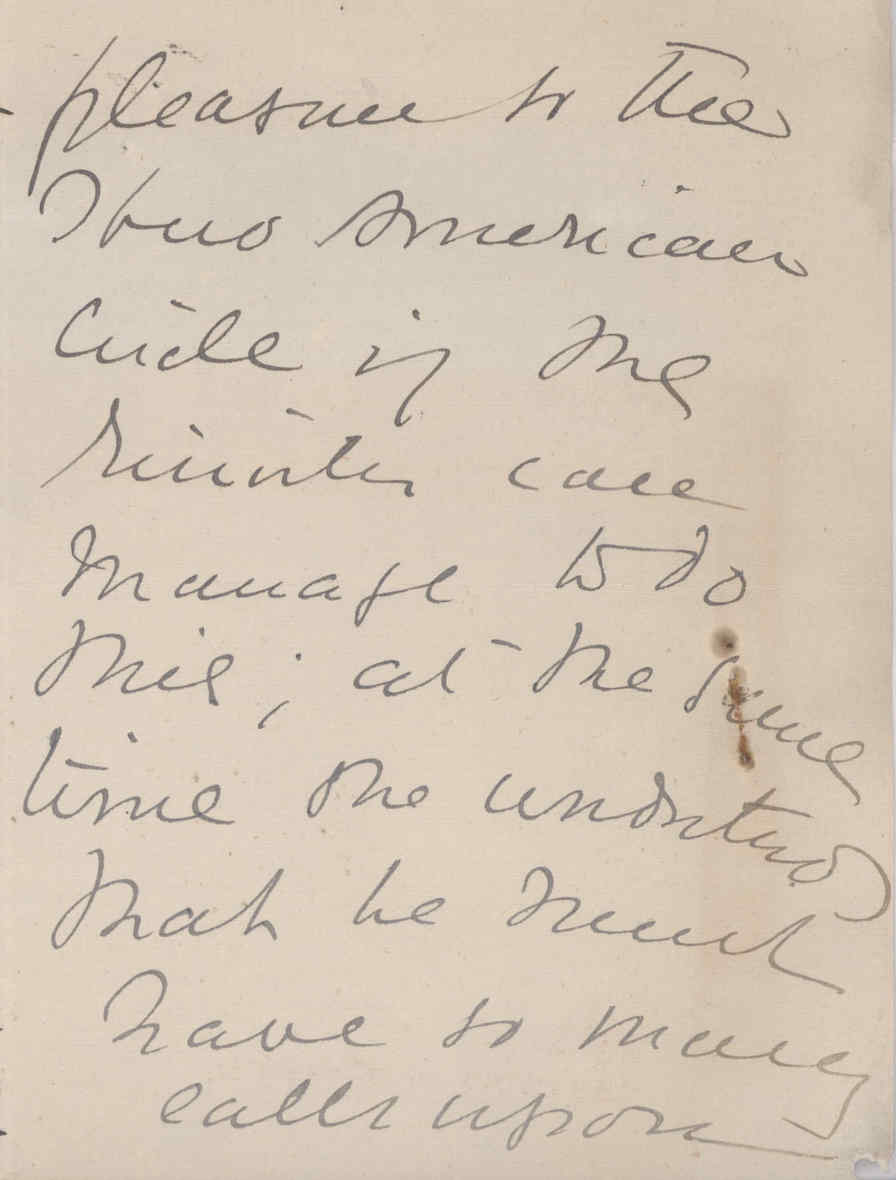 pleasure to the
American
Circle if the
Minister can
manage to do
this; at the same
time understand
that he must
have so many
calls upon